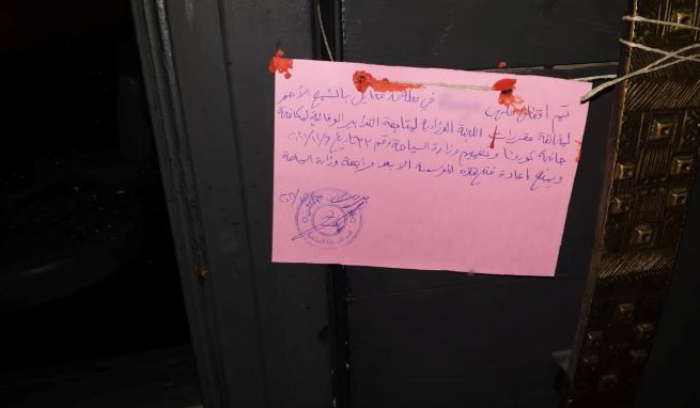 تم اقفال ملهى في محلة معامل بالشمع الأحمر
لمخالفة مقررات اللجنة الوزارية لمتابعة التدابير الوقائية لمكافحة
جائحة كورونا وتعميم وزارة السياحة رقم ٢٢ تاريخ
ويمنع اعادة فتح هذه المؤسسة الا بعد مراجعة وزارة السياحة